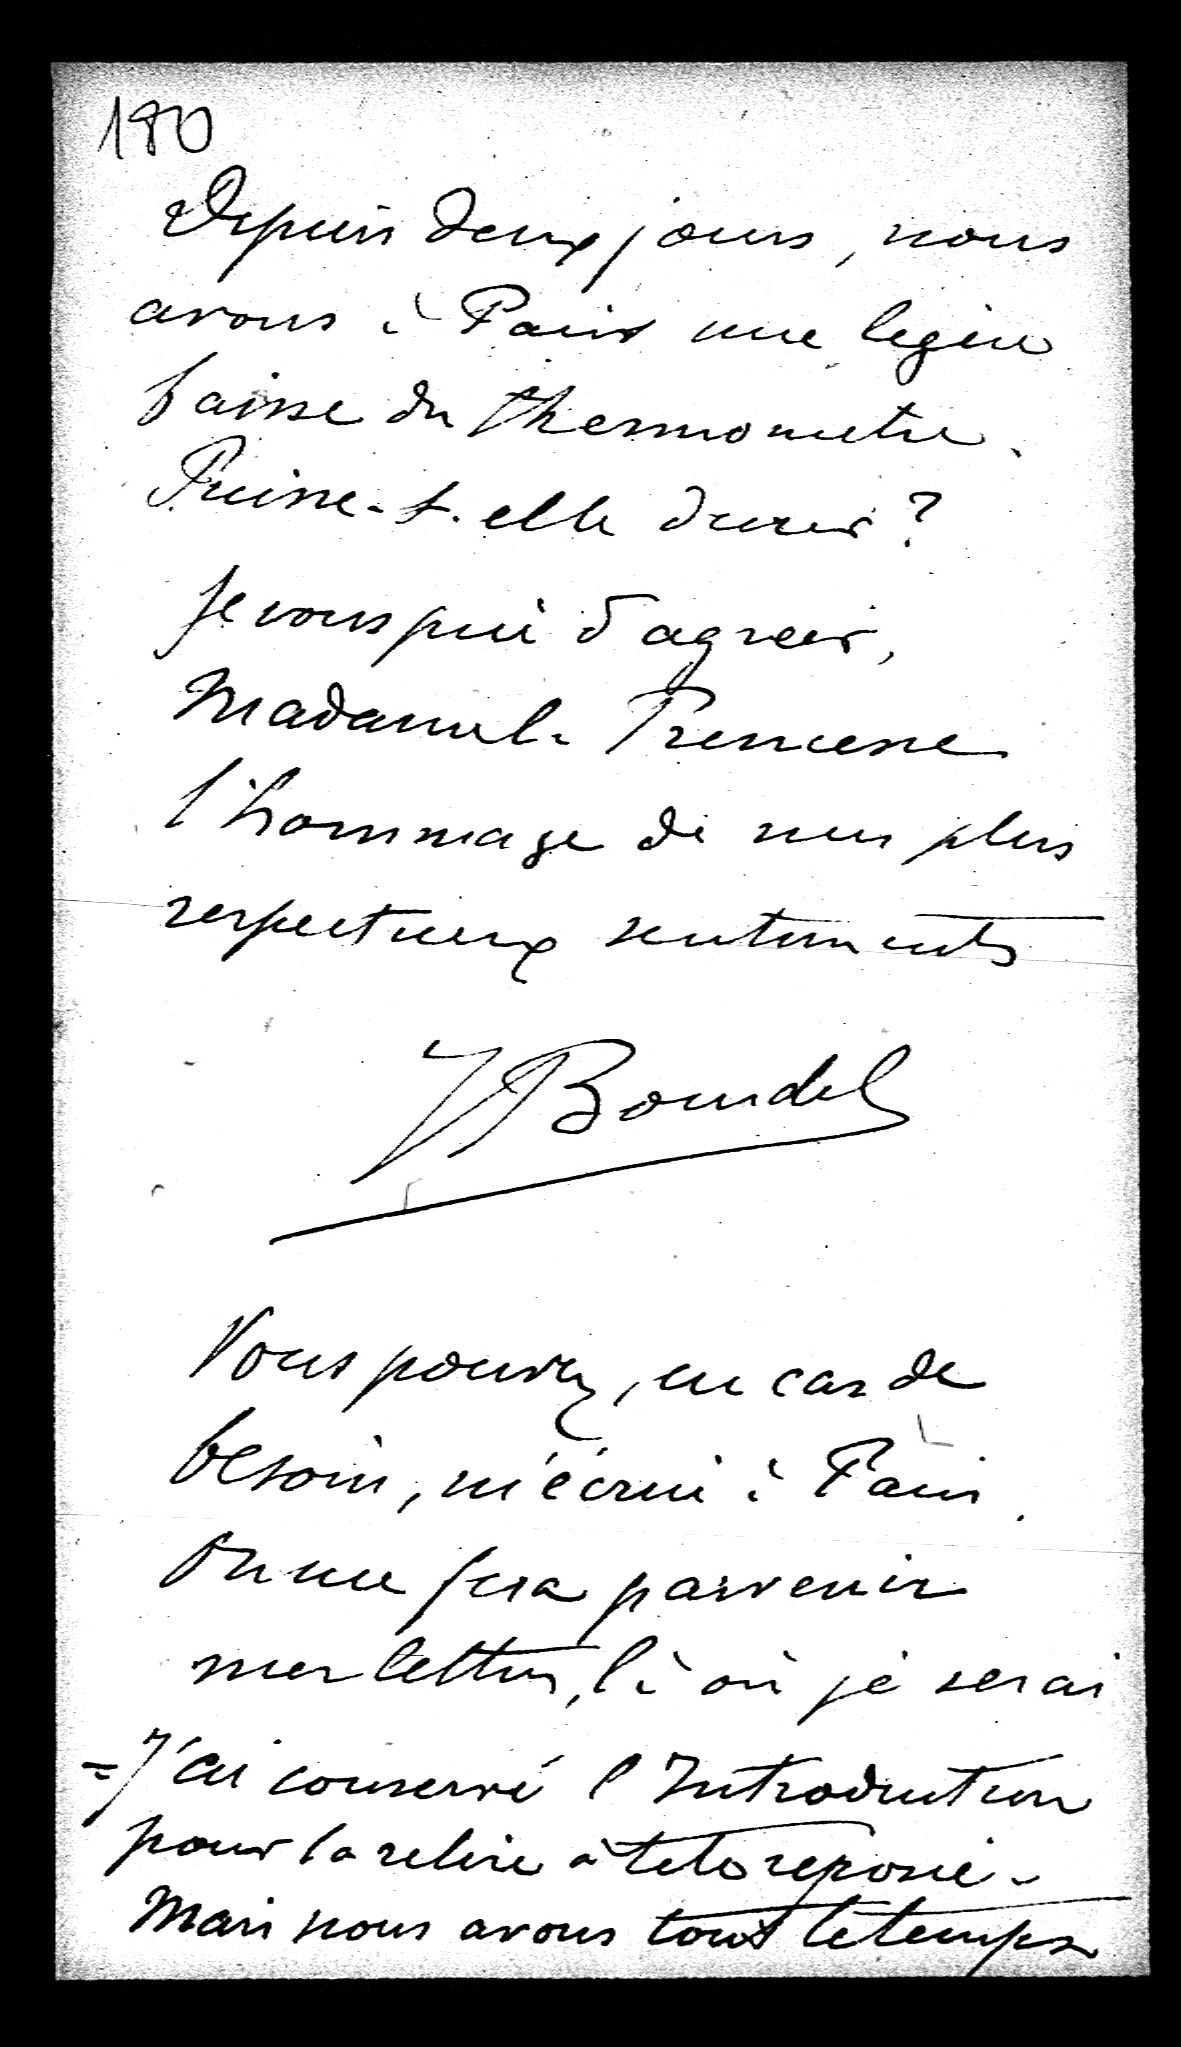 180
Depuis deux jours, nous
avons à Paris une légère
baisse du thermometre.
Puisse-t-elle durer?
Je vous prie d'agréer,
Madame la Princesse
l'hommage de mes plus
respectueux sentiments
J Bourdel
Vous pouvez, en cas de
besoin, m'écrire à Paris.
On me fera parvenir
mes lettres, là où je serai
= J'ai conservé l'Introduction
pour la relire à tete reposée -
Mais nous avons tout le temps